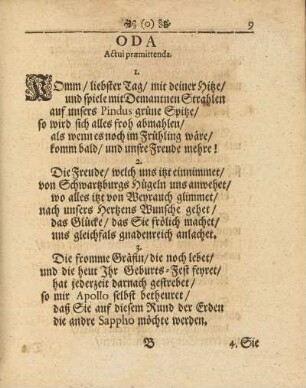 (0) 9
ODA
Actui præmittenda.
1.
Komm/ liebster Tag/ mit deiner Hitze/
und spiele mit Demantnen Strahlen
auf unsers Pindus grüne Spitze/
so wird sich alles froh abmahlen/
als wenn es noch im Frühling wäre/
komm bald/ und unsre Freude mehre!
2.
Die Freude/ welch uns itzt einnimmet/
von Schwartzburgs Hügeln uns anwehet/
wo alles itzt von Weyrauch glimmet/
nach unsers Hertzens Wunsche gehet/
das Glücke/ das Sie frölich machet/
uns gleichfals gnadenreich anlachet.
3.
Die fromme Gräfin/ die noch lebet/
und die heut Ihr Geburts-Fest feyret/
hat jederzeit darnach gestrebet/
so mir Apollo selbst betheuret/
daß Sie auf diesem Rund der Erden
die andre Sappho möchte werden.
B 4. Sie